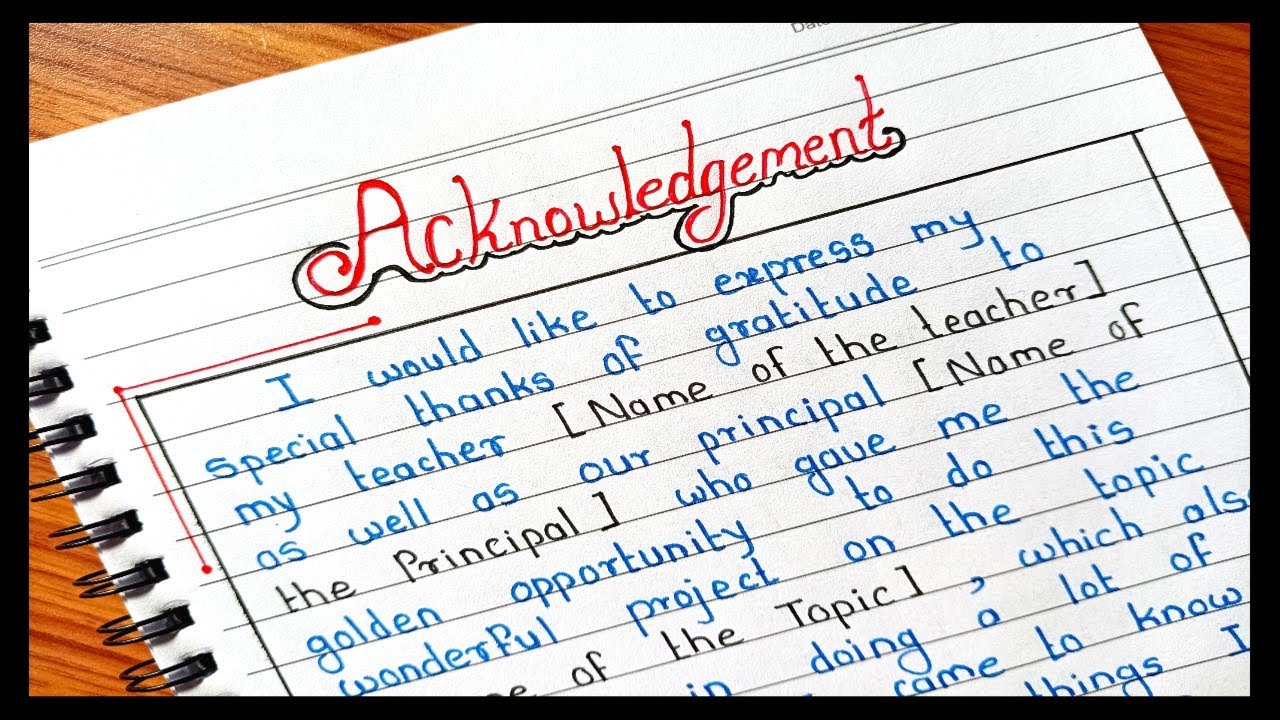 Acknowledgement
I would like to express my
special thanks of gratitude to
my teacher [Name of the teacher]
as well as our principal [Name of
the Principal] who gave me the
golden opportunity to do this
wonderful project on the topic
of the Topic], which also
in doing a lot of
came to know
things I